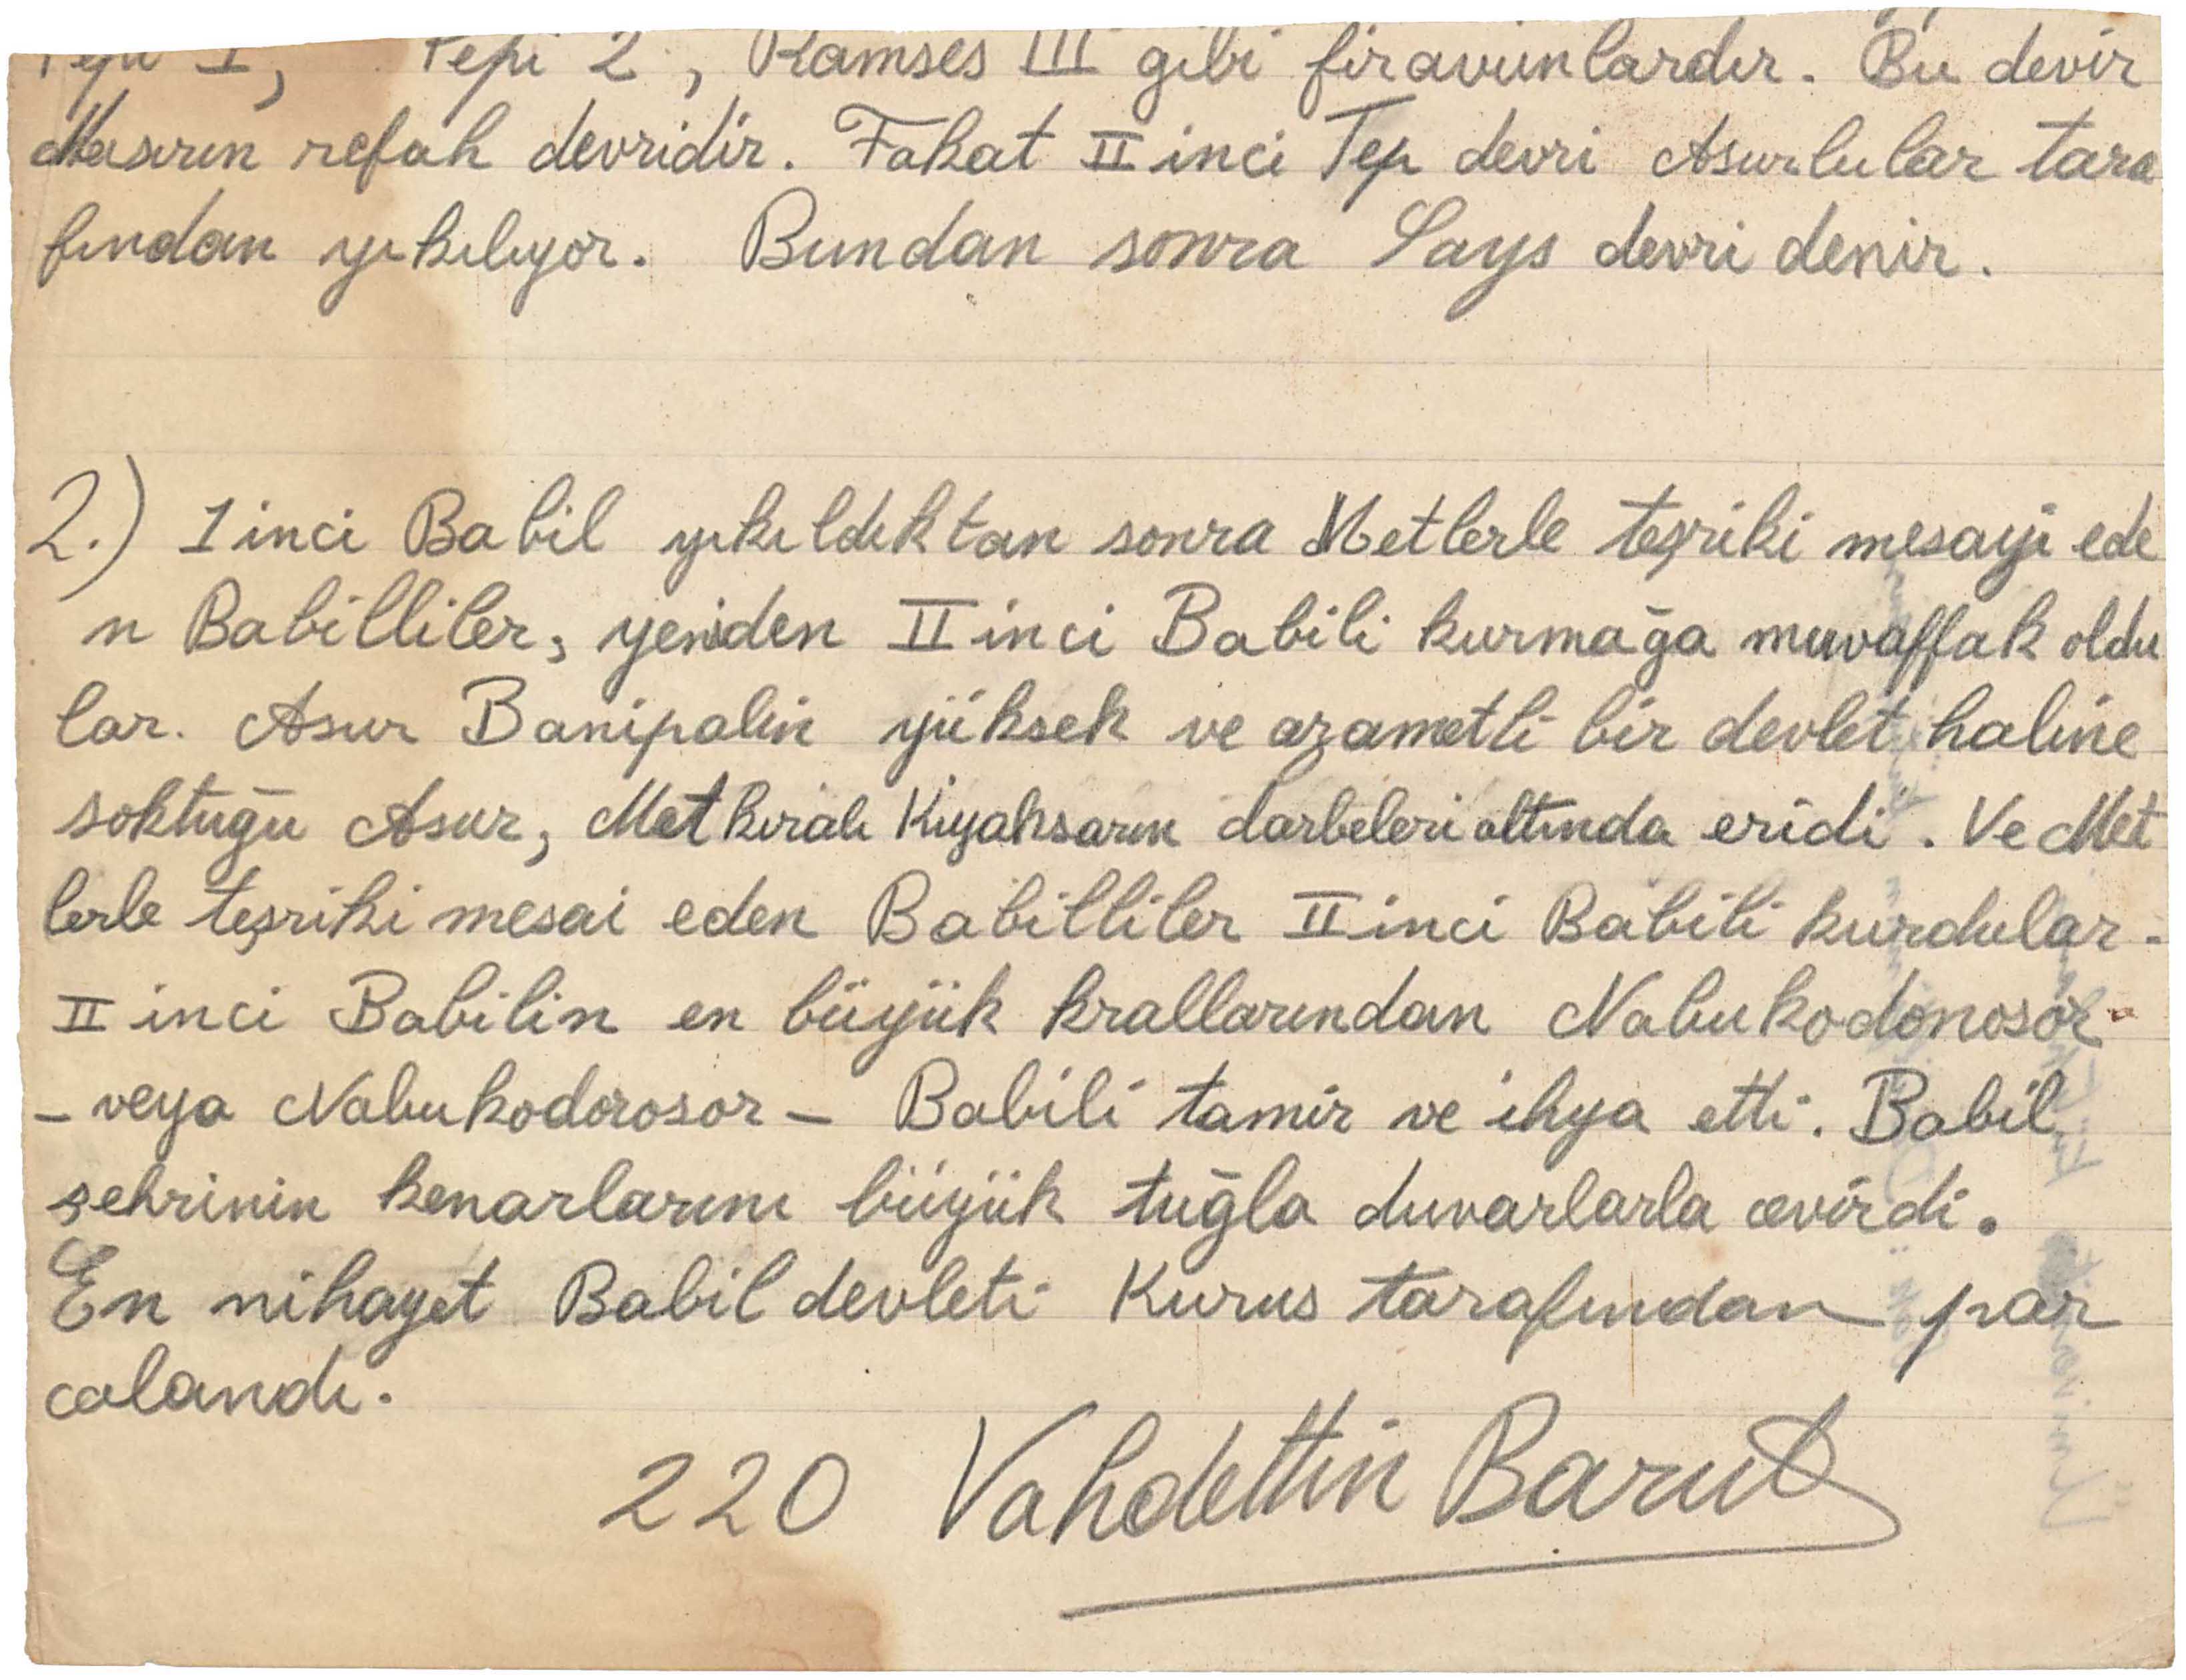 Pepi 1, Pepi 2, Ramses III gibi firavunlardır. Bu devir
Mısırın refah devridir. Fakat II inci Tep devri Asurlular tara
fından yıkılıyor. Bundan sonra Says devri denir.
2.) 1 inci Babil yıkıldıktan sonra Metlerle teşriki mesayi ede
n Babilliler, yeniden II inci Babili kurmağa muvaffak oldu
lar. Asur Banipalin yüksek ve azametli bir devlet haline
soktuğu Asur, Met kıralı Kiyaksarın darbeleri altında eridi. Ve Met
lerle teşriki mesai eden Babilliler II inci Babili kurdular.
II inci Babilin en büyük krallarından Nabukodonosor
- veya Nabukodorosor - Babili tamir ve ihya etti. Babil
şehrinin kenarlarını büyük tuğla duvarlarla cevirdi.
En nihayet Babil devleti Kurus tarafından par
calandı.
220 Vahdettin Barut